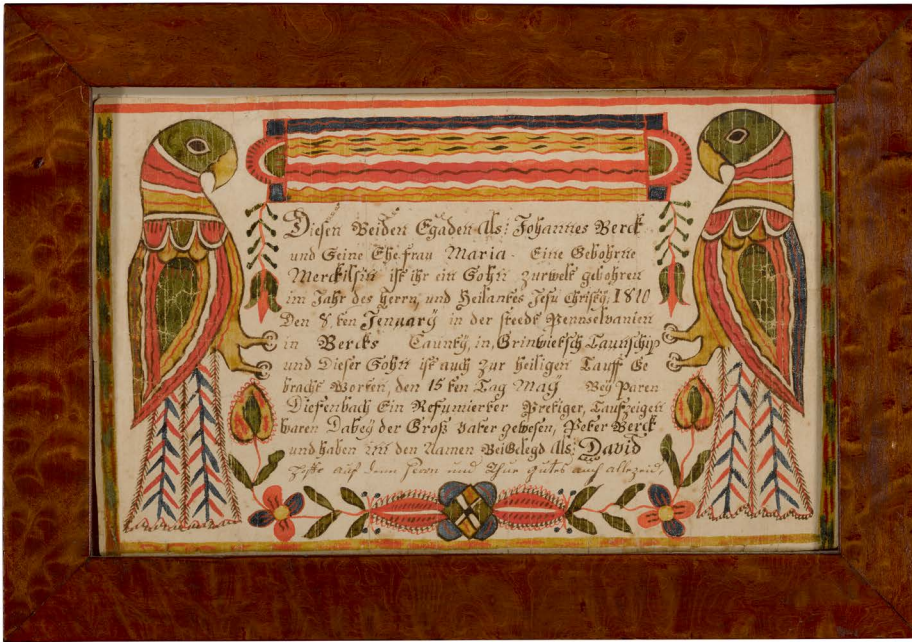 Diesen Beiden Egaden Als: Johannes Berck
und Seine Ehe frau Maria - Eine Gebohrne
Merckilsin ist ihr ein Sohn zurwelt gebohren
im Jahr des Herrn, und Heilandes Jesu Christy, 1810
Den 8.ten Jenuary in der steedt Pennselvanien
in Bercks Caunty, in, Grinwietsch Taunschip
und Dieser Sohn ist auch zur heiligen Tauff Ge
bracht Worten, den 15 ten Tag May Bey Paren
Diefenbach Ein Refumierter Prediger, Taufzeigen
waren Dabey der Groß vater gewesen, Peter Berck
und haben im den Namen BeiGelegd Als: David
auf den Herrn und Thue guts auch allezeid,